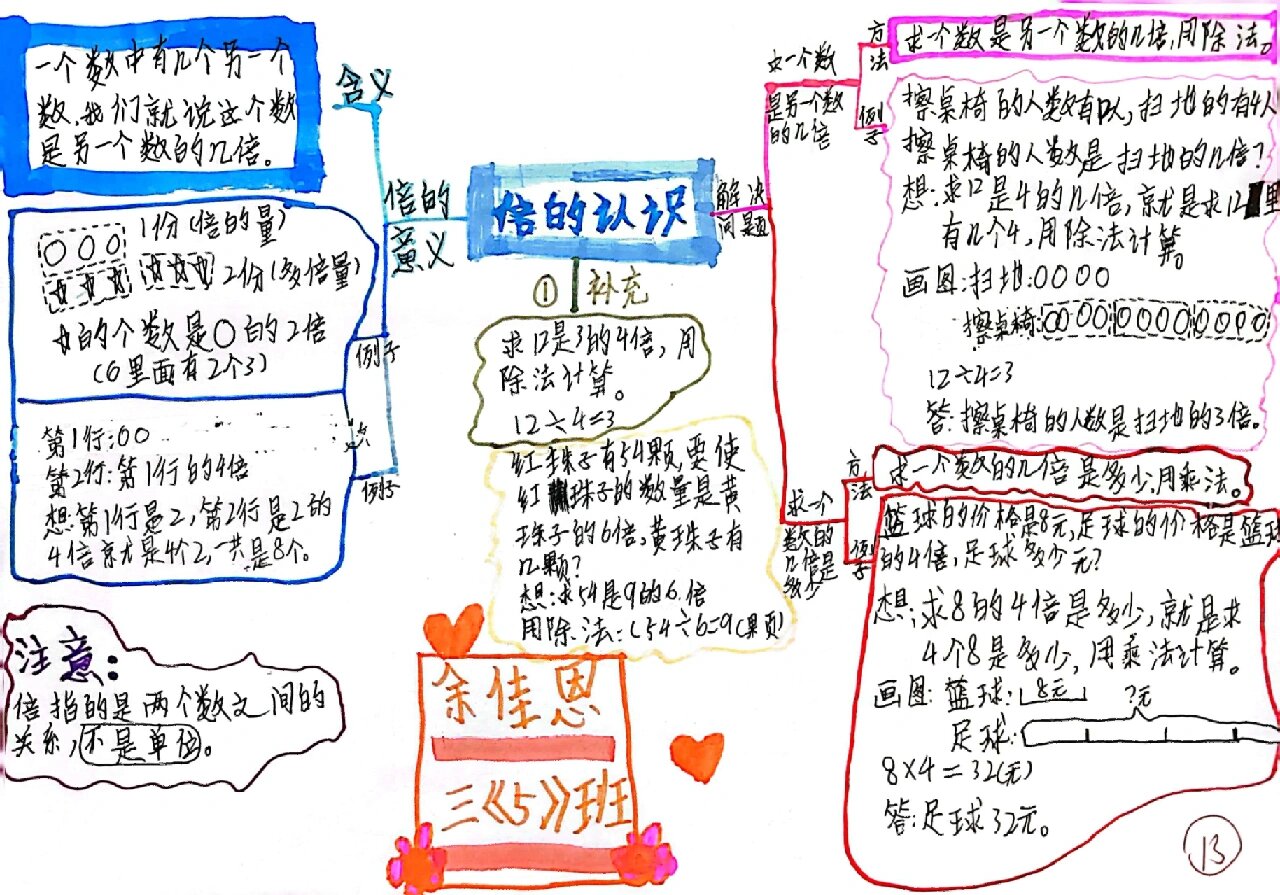 倍的认识
倍的
意义
含义
一个数中有几个另一个
数,我们就说这个数
是另一个数的几倍。
例子
1份(倍的量)
2份(多倍量)
☆的个数是○的2倍
(6里面有2个3)
例子
第1行:○○
第2行:第1行的4倍
想:第1行是2,第2行是2的
4倍就是4个2,一共是8个。
注意:
倍指的是两个数之间的
关系,不是单位。
① 补充
求12是3的4倍,用
除法计算。
12÷4=3
红珠子有54颗,要使
红珠子的数量是黄
珠子的6倍,黄珠子有
几颗?
想:求54是9的6倍
用除法:(54÷6=9(颗)
余佳恩
三《5》班
解决
问题
求一个数
是另一个数
的几倍
方法
求一个数是另一个数的几倍,用除法。
例子
擦桌椅的人数有12人,扫地的有4人
擦桌椅的人数是扫地的几倍?
想:求12是4的几倍,就是求12里
有几个4,用除法计算。
画图:扫地:○○○○
擦桌椅:○○○○ ○○○○ ○○○○
12÷4=3
答:擦桌椅的人数是扫地的3倍。
求一个
数的
几倍是
多少
方法
求一个数的几倍是多少,用乘法。
例子
篮球的价格是8元,足球的价格是篮球
的4倍,足球多少元?
想:求8的4倍是多少,就是求
4个8是多少,用乘法计算。
画图:篮球: 8元
?元
足球:
8×4=32(元)
答:足球32元。
13